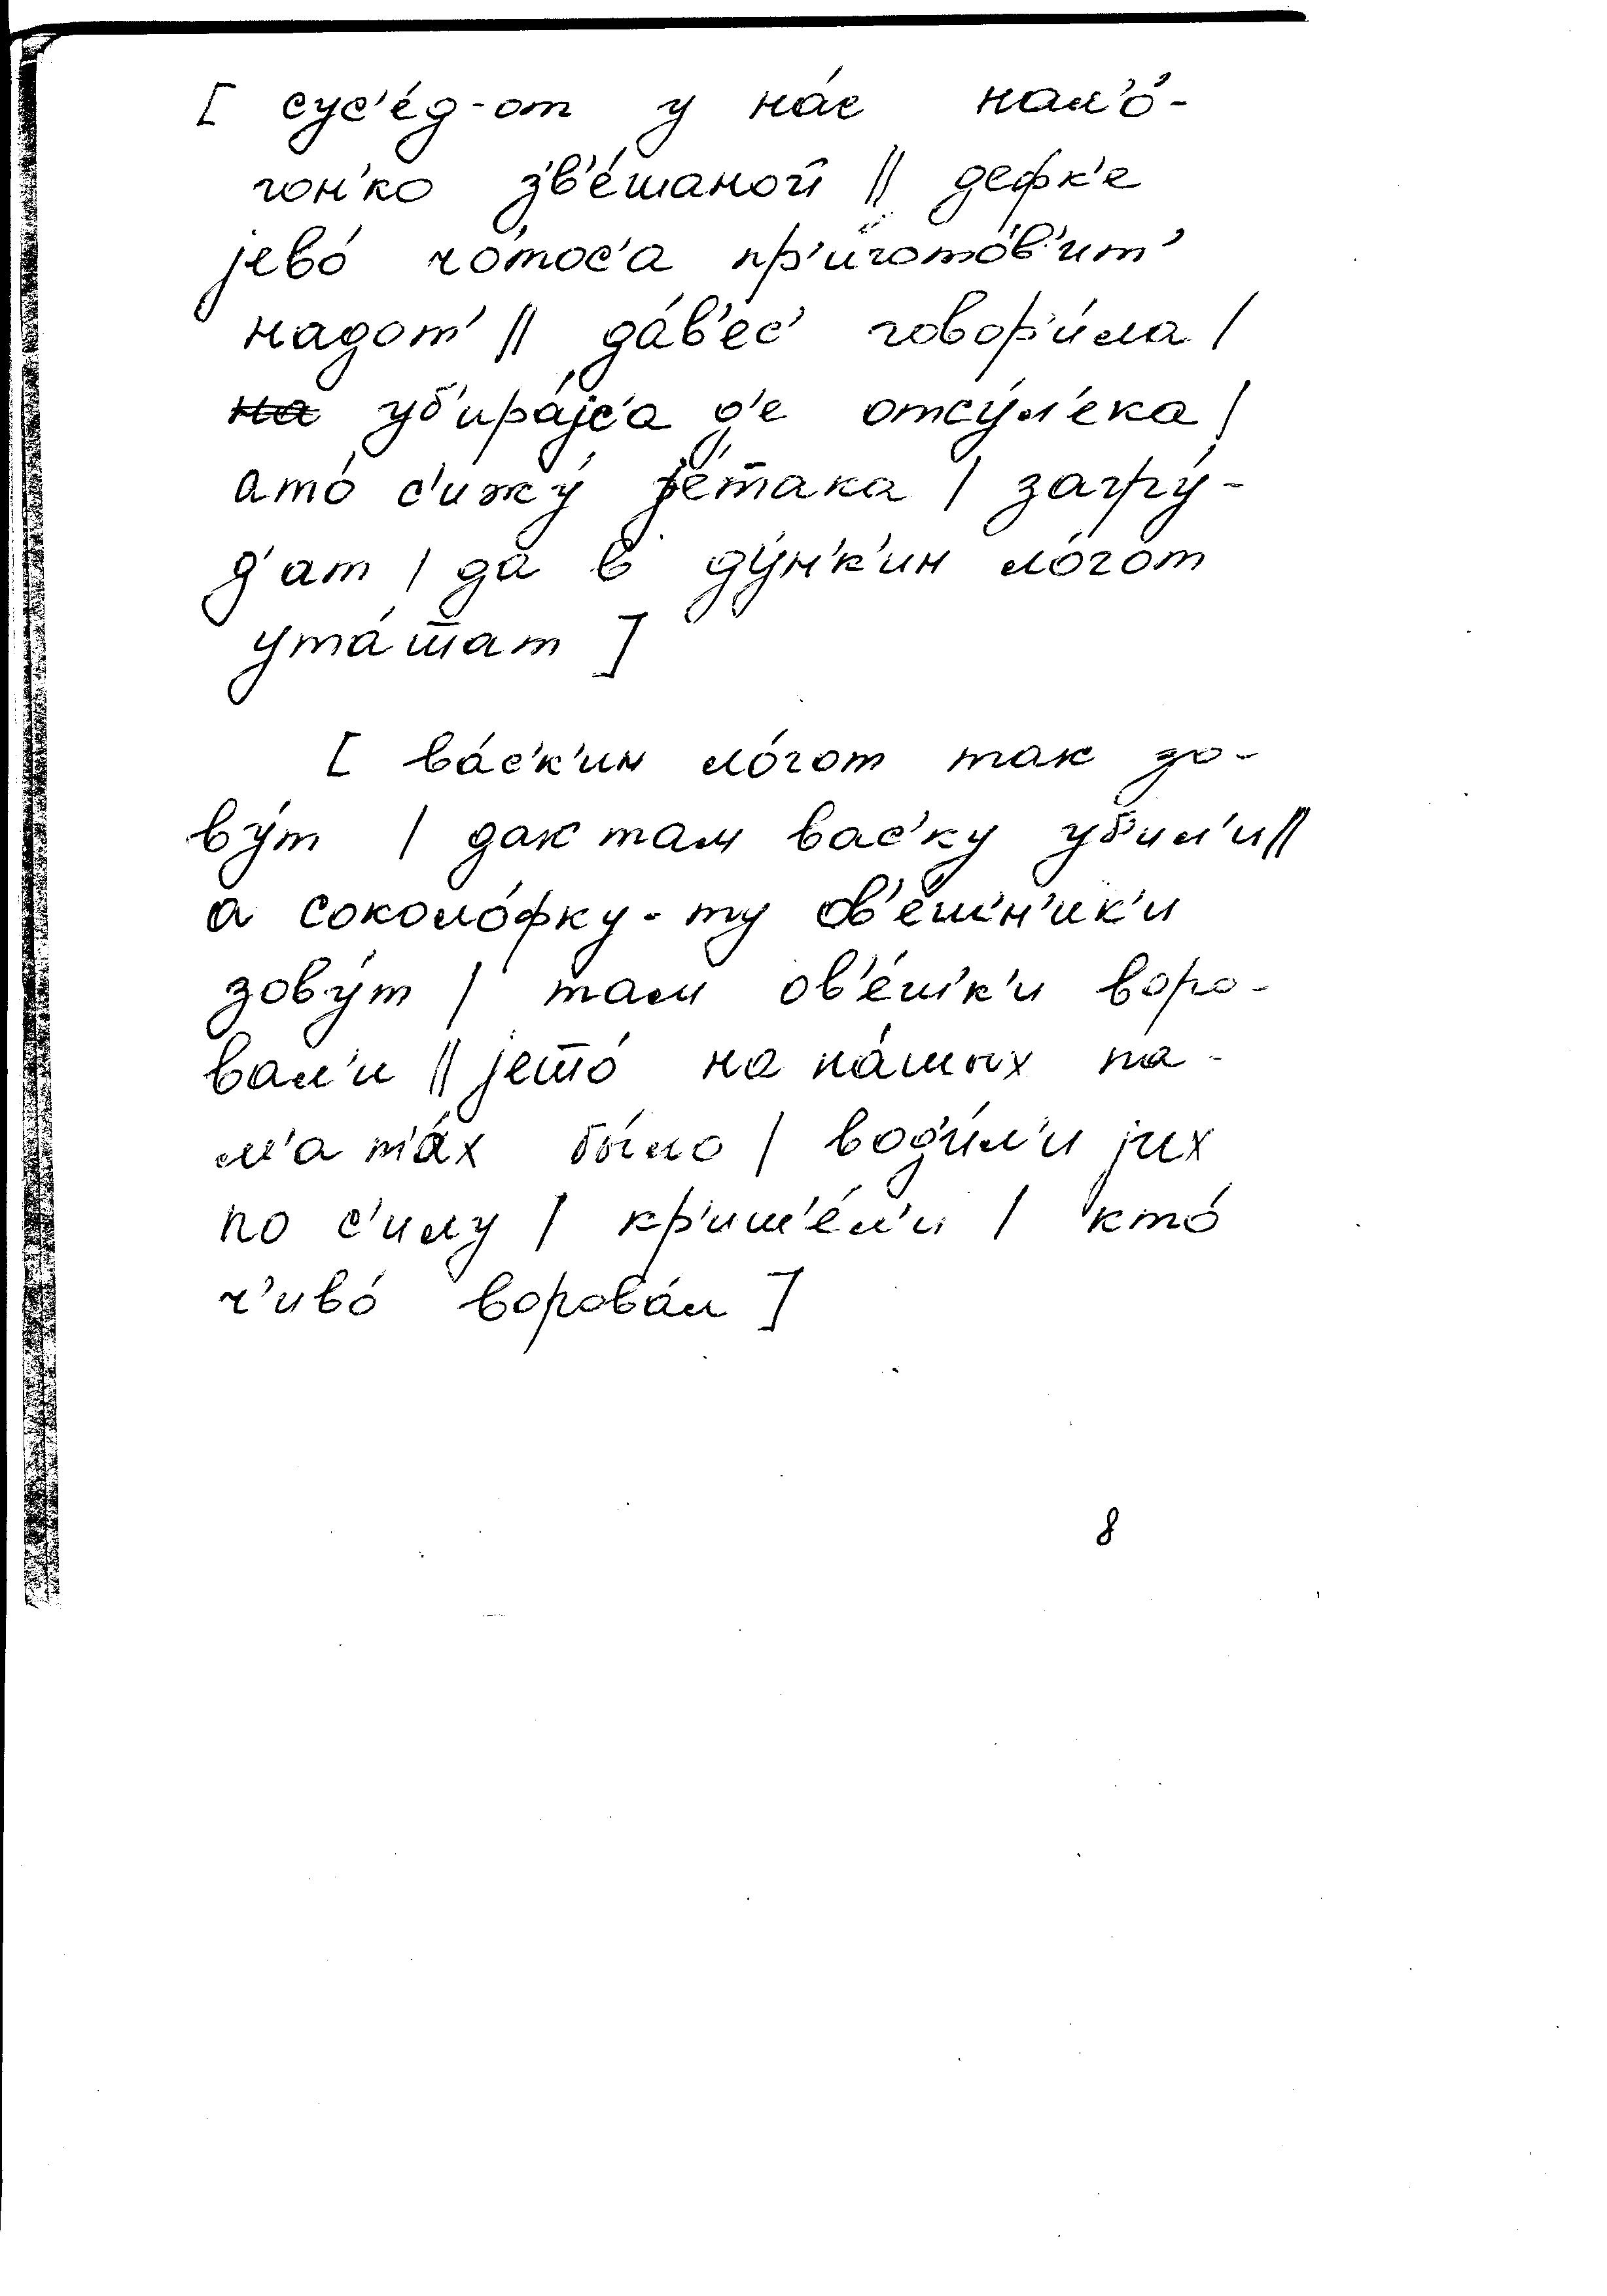 [ сус'е́д-от у на́с нал'о́-
гон'ко зв'е́шаной || дефк'е
jево́ чо́тос'а пр'игото́в'ит'
надот' || да́в'ес' говор'и́ла |
на уб'ира́jс'а д'е отсу́л'ека |
ато́ с'ижу́ jе́така | загру́-
д'ат | да в ду́н'к'ин ло́гот
ута́шат ]
[ ва́с'к'ин ло́гот так зо-
ву́т | дак там вас'ку уб'ил'и ||
а соколо́фку-ту ов'е́ш'н'ик'и
зову́т | там ов'е́ш'к'и воро-
вал'и || jето́ на на́шых па-
м'ат'а́х бы́ло | вод'и́л'и jих
по с'илу | кр'ич'е́л'и | кто́
ч'иво́ ворова́л ]
8